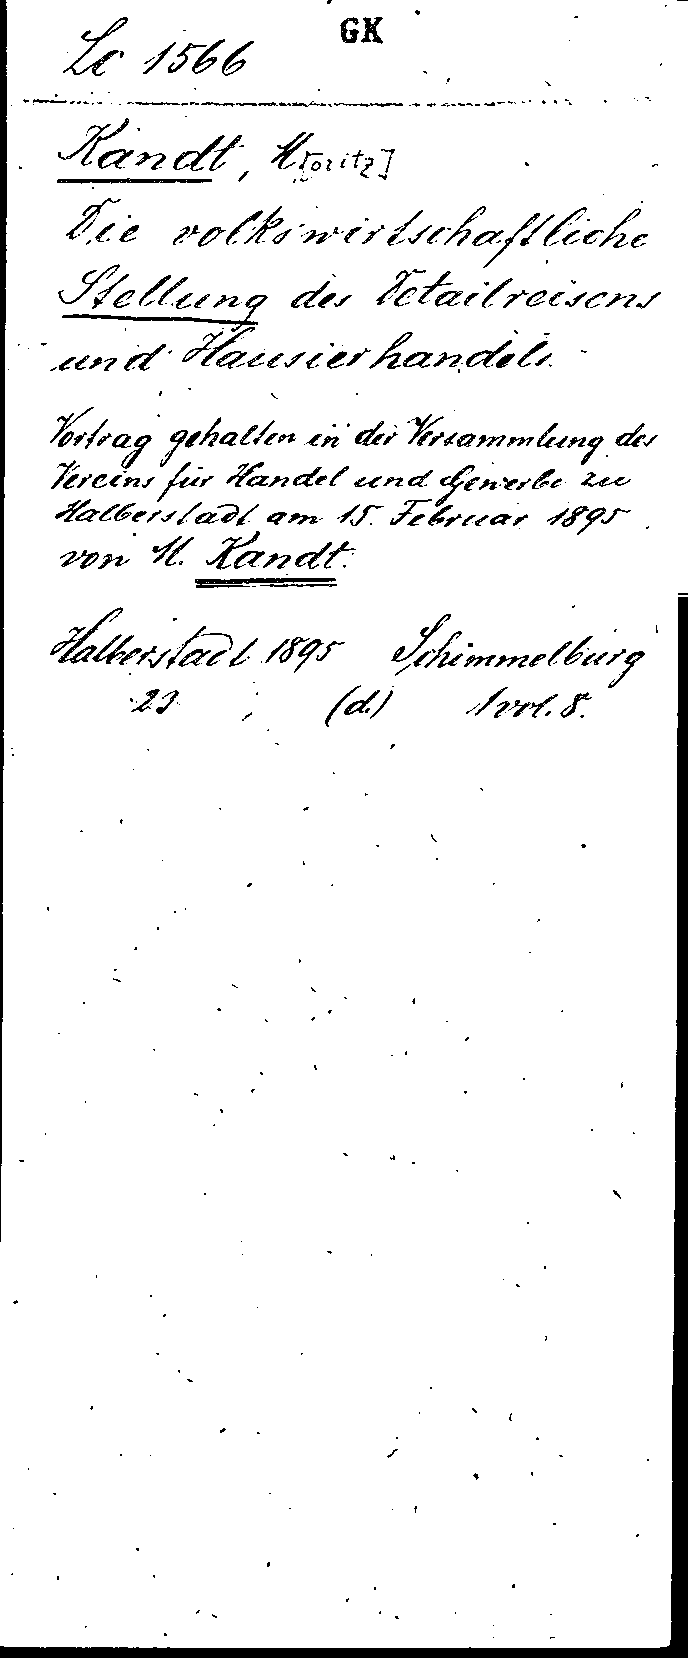 GK
Lc 1566
Kandt, M[oritz]
Die volkswirtschaftliche
Stellung des Detailreisens
und Hausierhandels.
Vortrag gehalten in der Versammlung des
Vereins für Handel und Gewerbe zu
Halberstadt am 15. Februar 1895
von M. Kandt.
Halberstadt 1895 Schimmelburg
23 (d.) 1 vol. 8.